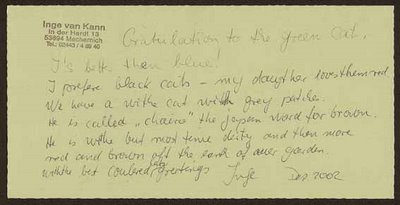 Inge van Kann
In der Hardt 13
53894 Mechernich
Tel.: 02443 / 49 40
Gratulation to the green cat.
It's better then blue!
I prefere black cats – my daugther loves them red
We have a withe cat with grey patches.
He is called "chairo" the japsen word for brown.
He is withe but most time dirty and then more
red and brown oft the earth of ower garden.
with the best coulered greetings Inge Dez 2002